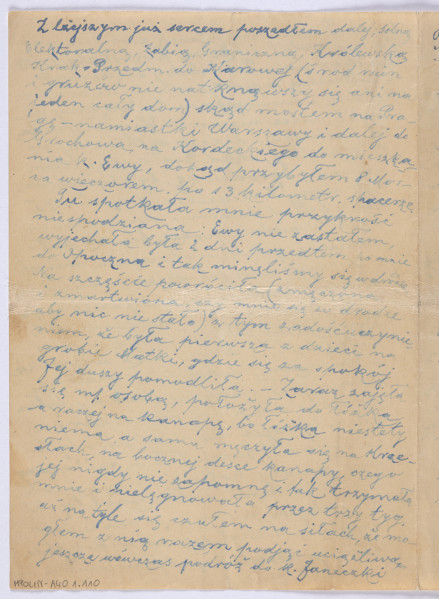 Z lżejszym już sercem poszedłem dalej, Solną
Elektoralną, Żabią, Graniczną, Królewską
Krak-Przedm. do Karowej (śród ruin
i gruzów nie natknąwszy się ani na
jeden cały dom) skąd mostem na Pra-
gę - namiastki Warszawy i dalej do
Grochowa na Kordeckiego do mieszka-
nia k. Ewy, dokąd przybyłem 8 Mar-
ca wieczorem, ho 13 kilometr. spacerze
Tu spotkała mnie przykrość
niespodziana: Ewy nie zastałem,
wyjechała była 2 dni przedtem po mnie
do Opoczna i tak minęliśmy się w drodze
Na szczęście powróciła (zmęczona
i zmartwiona, czy mnie się w drodze
aby nic nie stało) z tym zadośćuczynie
niem, że była pierwszą z dzieci na
grobie Matki, gdzie się za spokój
Jej duszy pomodliła. - Zaraz zajęła
się mą osobą, położyła do łóżka
a raczej na kanapę, bo łóżka niestety
niema, a sama męczyła się na krze-
słach, na bocznej desce kanapy, czego
jej nigdy nie zapomnę i tak trzymała
mnie i pielęgnowała przez trzy tyg.
aż na tyle się czułem na siłach, że mo-
głem z nią razem podjąć uciążliwą
jeszcze wówczas podróż do k. Janeczki
MPOLIN-A40.1.110